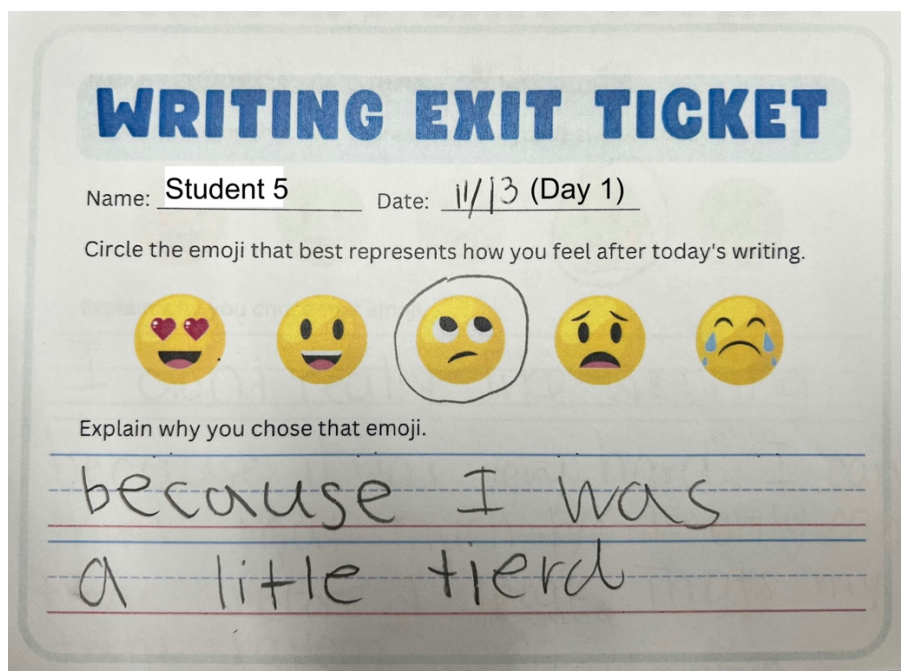 WRITING EXIT TICKET
Name: Student 5 Date: 11/13 (Day 1)
Circle the emoji that best represents how you feel after today's writing.
Explain why you chose that emoji.
because I was
a little tierd